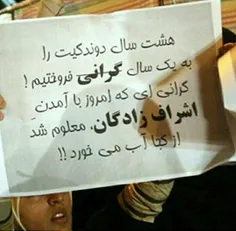 هشت سال دوندگیت را
به یک سال گرانی فروختیم !
گرانی ای که امروز با آمدنِ
اشراف زادگان، معلوم شد
از کجا آب می خورد !!